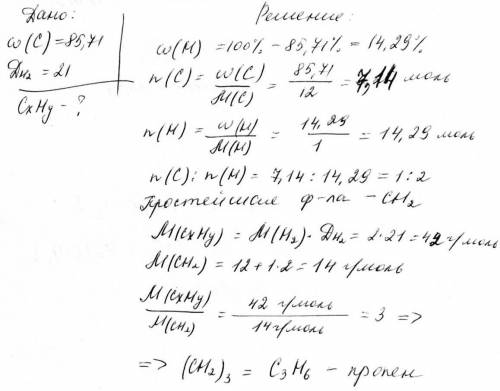 Дано:
ω(C) = 85,71
Dн₂ = 21
CxHy - ?
Решение:
ω(H) = 100% - 85,71% = 14,29%
n(C) = ω(C)/M(C) = 85,71/12 = 7,14 моль
n(H) = ω(H)/M(H) = 14,29/1 = 14,29 моль
n(C) : n(H) = 7,14 : 14,29 = 1:2
Простейшие ф-ла - CH₂
M(CxHy) = M(H₂) · Dн₂ = 2·21 = 42 г/моль
M(CH₂) = 12+1·2 = 14 г/моль
M(CxHy)/M(CH₂) = 42 г/моль/14 г/моль = 3 =>
=> (CH₂)₃ = C₃H₆ - пропен